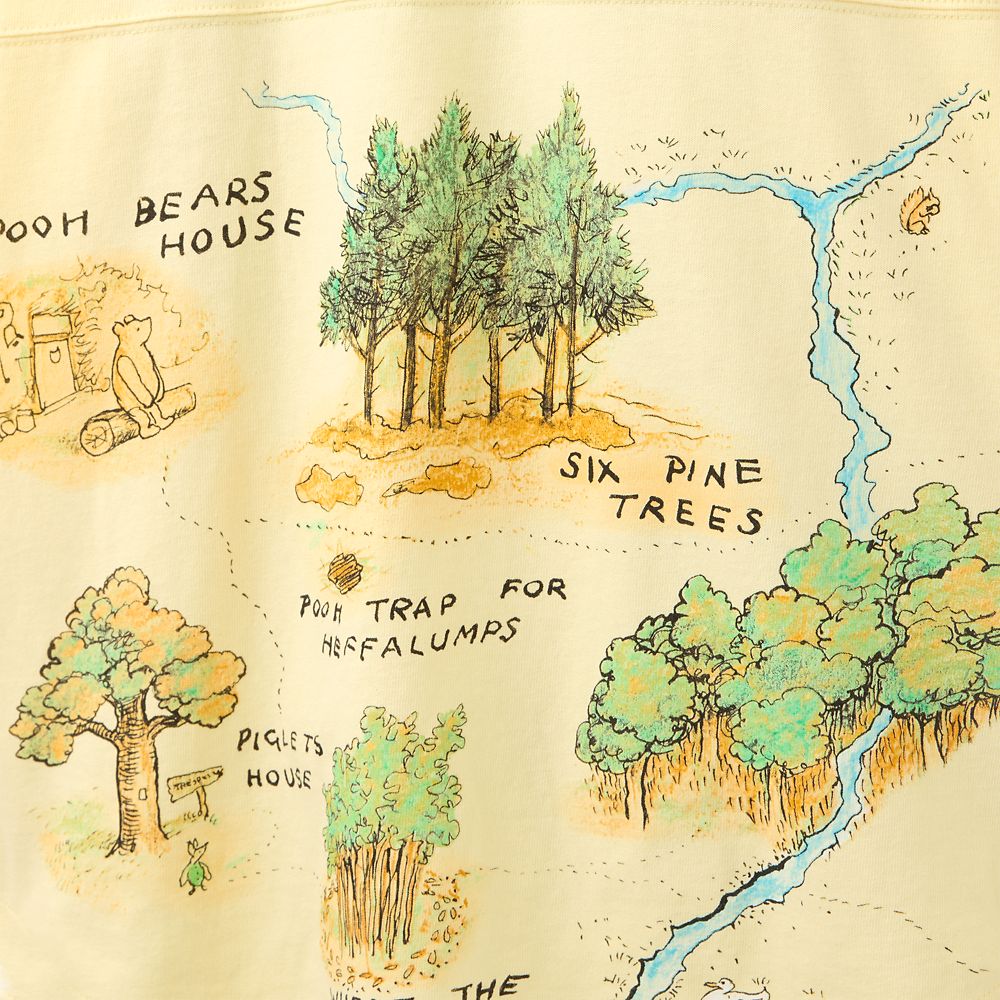 POOH BEARS
HOUSE
SIX PINE
TREES
POOH TRAP FOR
HEFFALUMPS
PIGLETS
HOUSE
THE